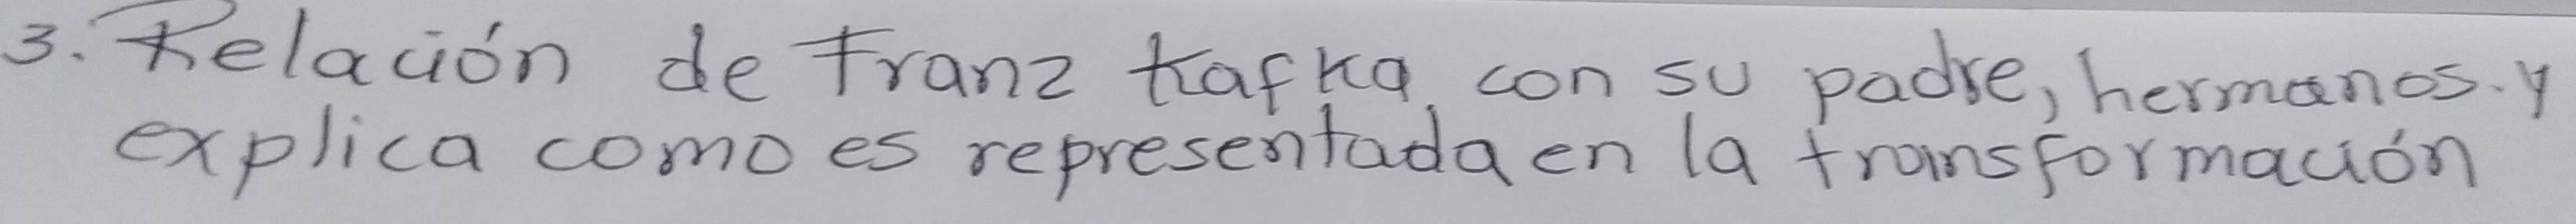 3. Relación de Franz Kafka, con su padre, hermanos. y
explica como es representada en la transformación